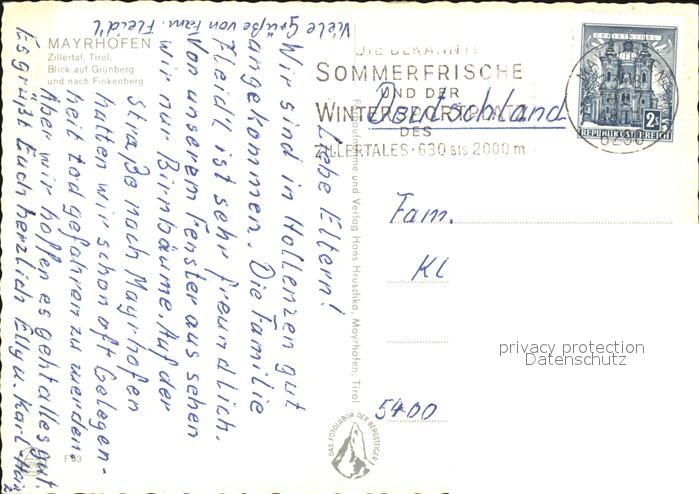 MAYRHOFEN
Zillertal, Tirol,
Blick auf Grünberg
und nach Finkenberg
Liebe Eltern!
Wir sind in Hollenzen gut
angekommen. Die Familie
Fleidl ist sehr freundlich.
Von unserem Fenster aus sehen
wir nur Birnbäume. Auf der
Straße nach Mayrhofen
hatten wir schon oft Gelegen-
heit tod gefahren zu werden.
Aber wir hoffen es geht alles gut.
Es grüßt Euch herzlich Elly u. Karl-
Viele Grüße von Fam. Fleidl
DIE BEKANNTE
SOMMERFRISCHE
UND DER
WINTERSPORTPLATZ
DES
ZILLERTALES · 630 bis 2000 m
REPUBLIK ÖSTERREICH
2S
6290
Deutschland
Fam.
Kl
5400
privacy protection
Datenschutz
Fotoaufnahme und Verlag Hans Hruschka, Mayrhofen, Tirol
DAS FOTOLABOR DER BERGSTEIGER
F 93